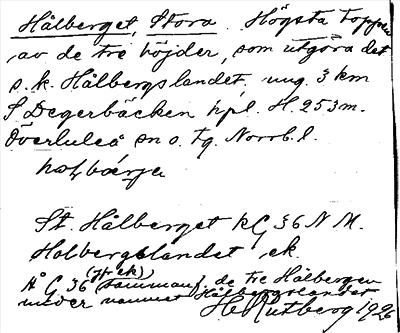 Hålberget, Stora. Högsta toppen
av de tre höjder, som utgöra det
s.k. Hålbergslandet, ung. 3 km
S Degerbäcken hpl. H. 253 m.
Överluleå sn o. tg. Norrb. l.
St. Hålberget kG 36 N M.
Holbergslandet ek.
HG 36 (Hek)
de tre Hålbergen
under namnet Hålbergslandet
H. Rutberg 1926